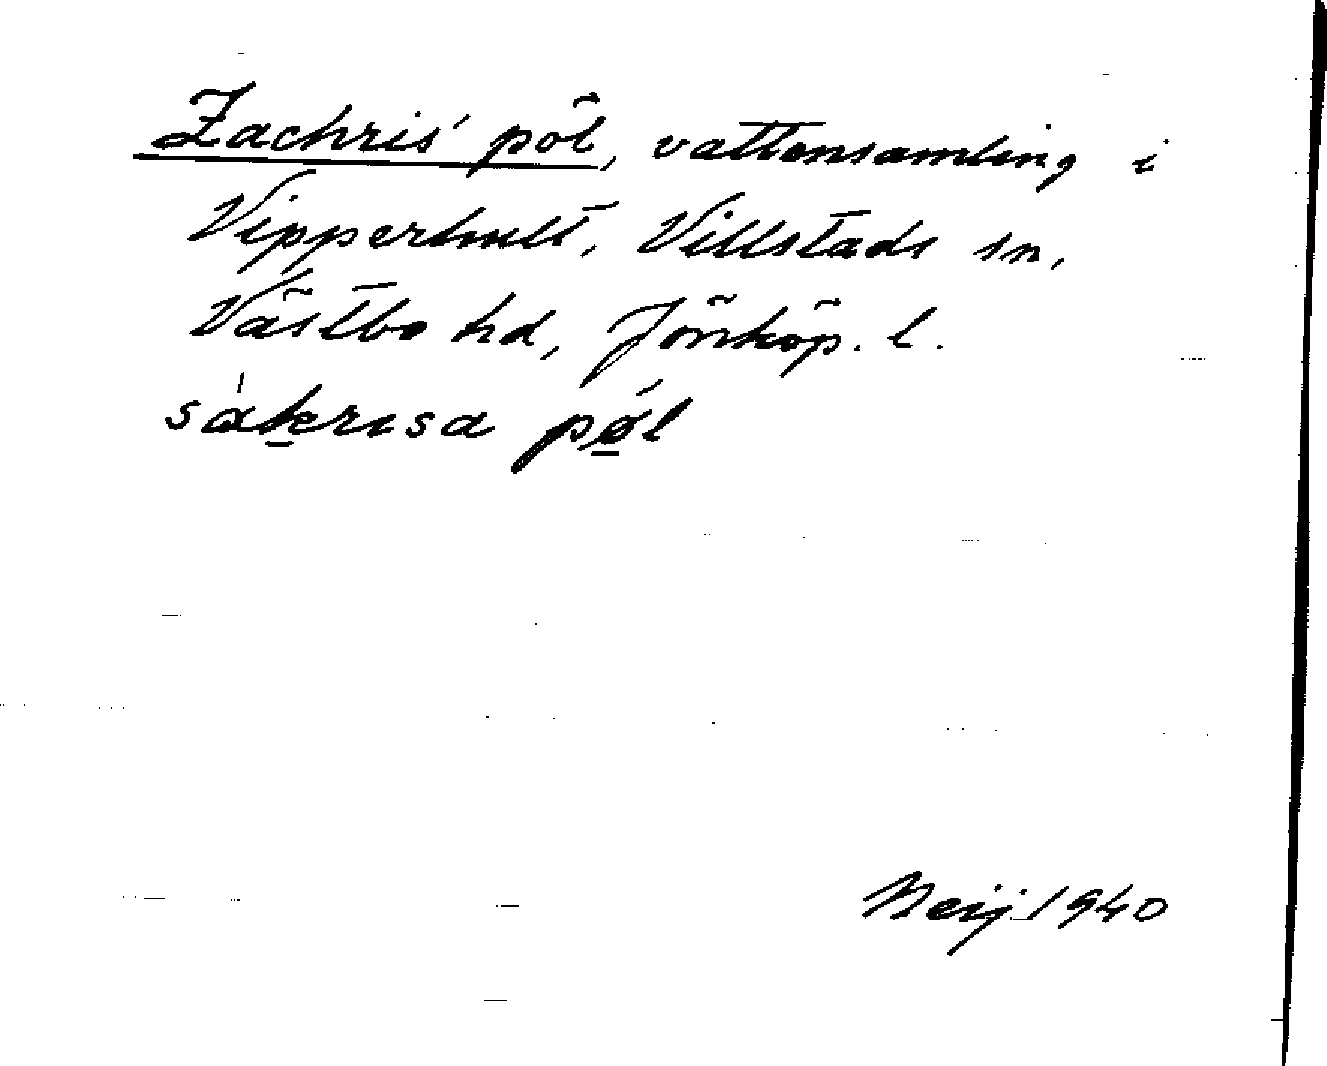 Zachris' pöl, vattensamling i
Vipperhult, Villstads sn,
Västbo hd, Jönköp. l.
sàkrısa pǿl
Neij 1940